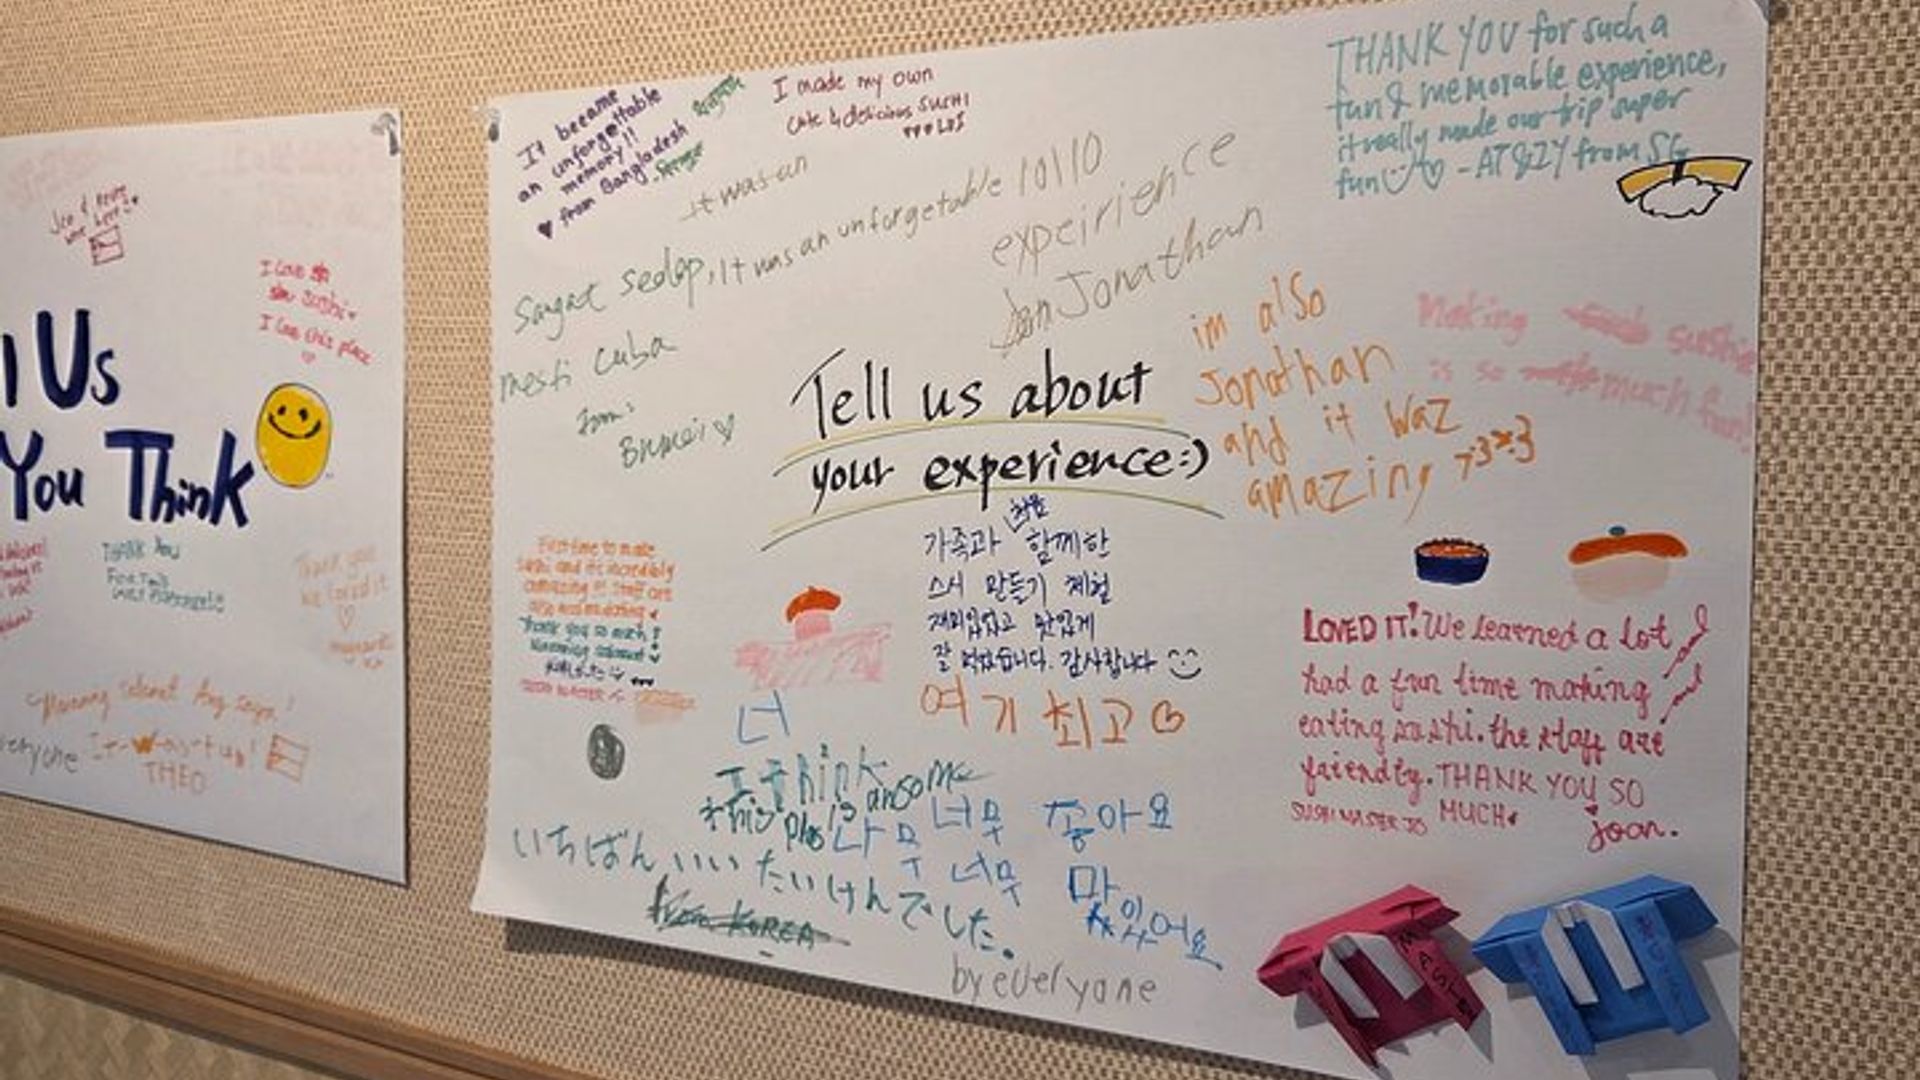 I Love
sushi
I love this place
l Us
You Think
THANK YOU
FOR THIS
Thank you
we loved it
says!
veryone
THEO
It became
an unforgettable
memory!!
from Bangladesh
I made my own
cute & delicious SUSHI
it was an
THANK YOU for such a
fun & memorable experience,
it really made our trip super
fun - AT & ZY from SG
Sangat sedap, It was an unforgetable 10/10
expeirience
Jonathan
mesti cuba
from:
Brunei
im also
Jonathan
and it waz
amazing >:3 x:3
Making sushi
is so much fun!
Tell us about
your experience:)
First time to make
sushi and it's incredibly
amazing !! Staff are
also
Thank you so much!
가족과 처음 함께한
스시 만들기 체험
재미있었고 맛있게
잘 먹었습니다. 감사합니다
여기 최고
너
I think
this is
너무 좋아요
너무 맛있어요
いちばんいいたいけんでした。
From KOREA
by everyone
LOVED IT! We learned a lot
had a fun time making
eating sushi. the staff are
friendly. THANK YOU SO
MUCH
SUSHI MASTER JO
joan.